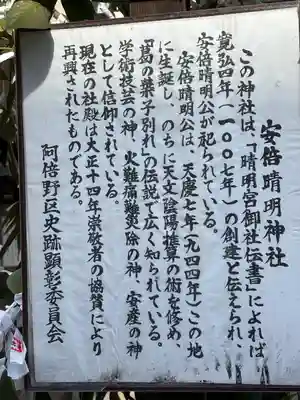 安倍晴明神社
この神社は、「晴明宮御社伝書」によれば
寛弘四年(一〇〇七年)の創建と伝えられ、
安倍晴明公が祀られている。
安倍晴明公は、天慶七年(九四四年)この地
に生誕し、のちに天文陰陽推算の術を修め、
「葛の葉子別れ」の伝説で広く知られている。
学術技芸の神、火難痛難災除の神、安産の神
として信仰されている。
現在の社殿は大正十四年崇敬者の協賛により
再興されたものである。
阿倍野区史跡顕彰委員会